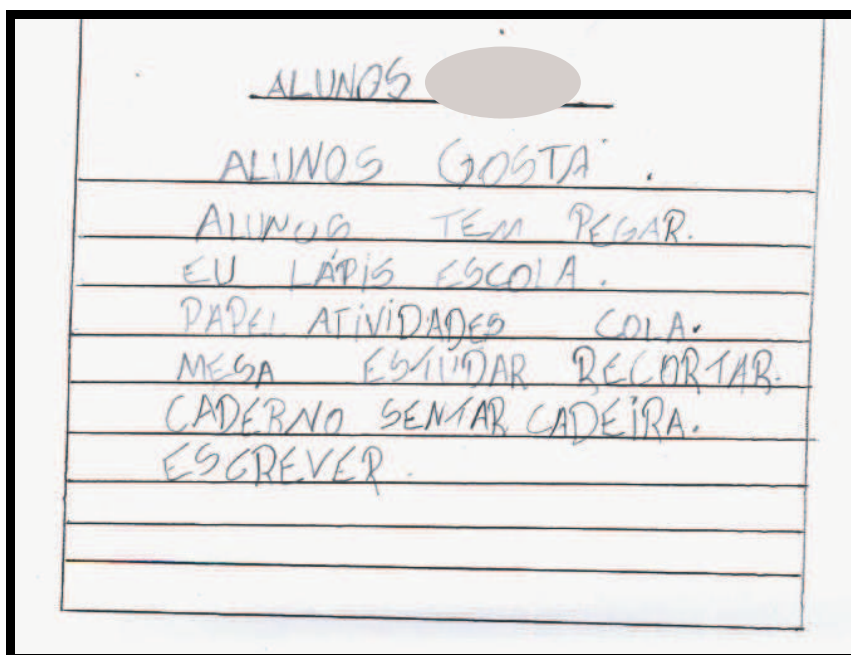 ALUNOS
ALUNOS GOSTA.
ALUNOS TEM PEGAR.
EU LÁPIS ESCOLA.
PAPEL ATIVIDADES COLA.
MESA ESTUDAR RECORTAR.
CADERNO SENTAR CADEIRA.
ESCREVER.